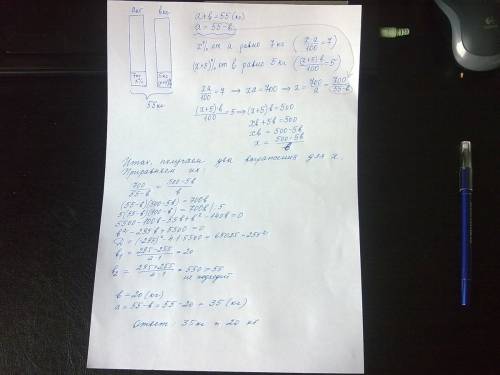 a кг в кг
a+в = 55 (кг)
a = 55-в
x% от a равно 7 кг (x·a/100 = 7)
(x+5)% от в равно 5 кг ((x+5)·в/100 = 5)
7кг x%
5кг
55 кг
xa/100 = 7 → xa = 700 → x = 700/a = 700/55-в
(x+5)·в/100 = 5 → (x+5)·в = 500
xв + 5в = 500
xв = 500-5в
x = 500-5в/в
Итак, получаем два выражения для x.
Приравняем их:
700/55-в = 500-5в/в
(55-в)(500-5в) = 700в
5(55-в)(100-в) = 700в |:5
5500-100в-55в+в²-140в=0
в²-295в+5500=0
D = (-295)²-4·1·5500 = 65025 = 255²
в1 = 295-255/2·1 = 20
в2 = 295+255/2·1 = 550 > 55
не подходит
в = 20 (кг)
a = 55-в = 55-20 = 35 (кг)
Ответ: 35 кг и 20 кг